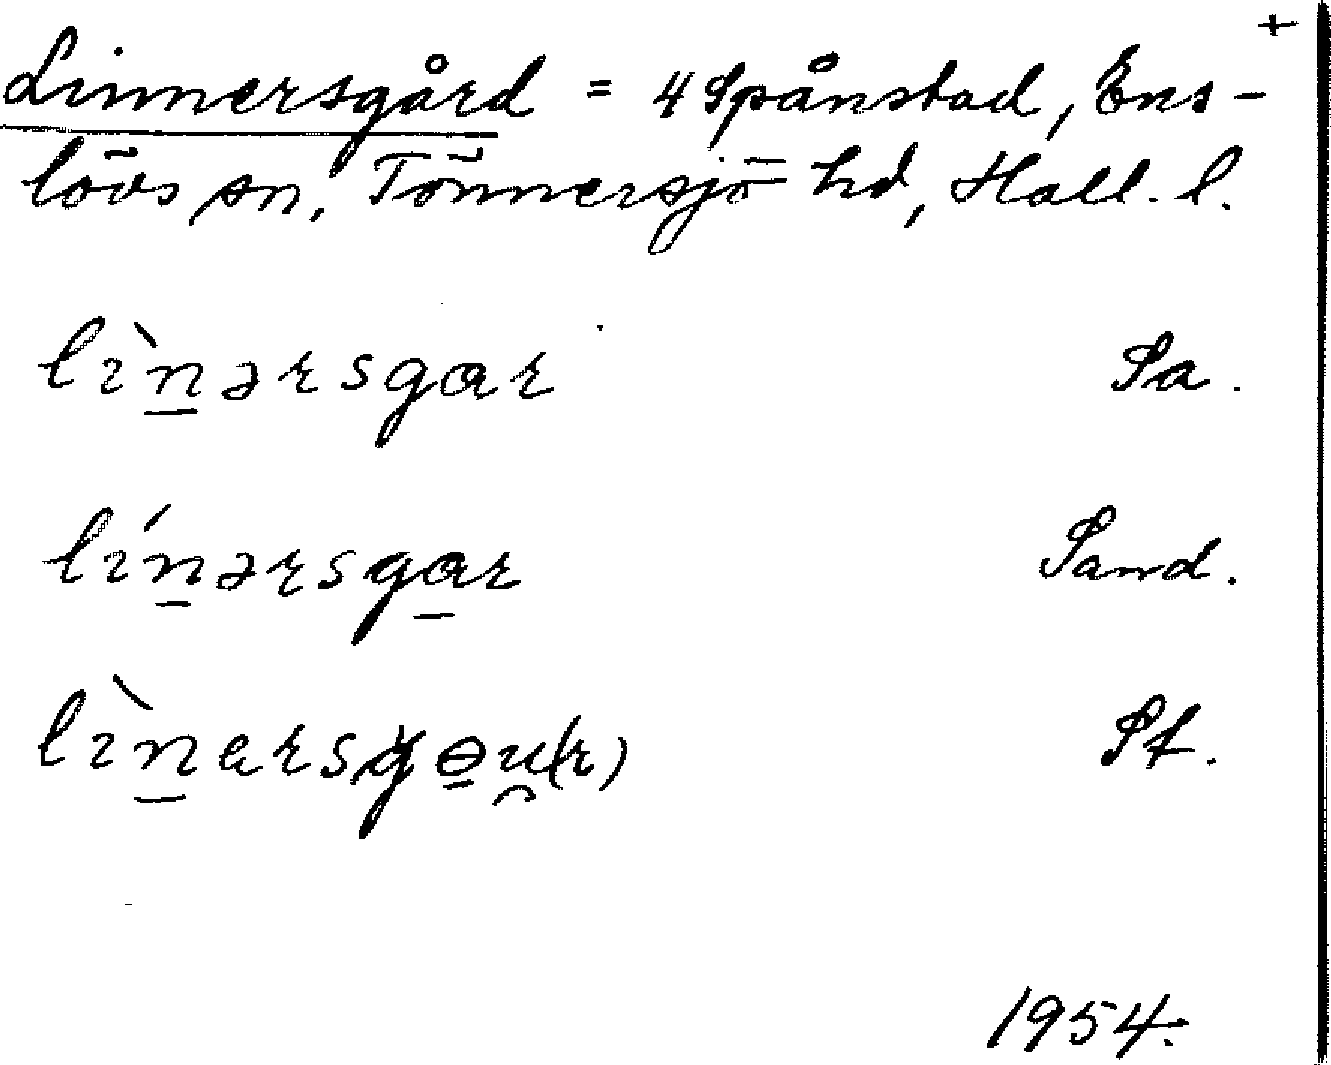 +
Linnersgård = 4 Spånstad, Ens-
lövs sn, Tönnersjö hd, Hall. l.
lìn̲ərsgar Sa.
lín̲ərsga̲r Sand.
lìn̲ersgɵ̲u̯(r) St.
1954.